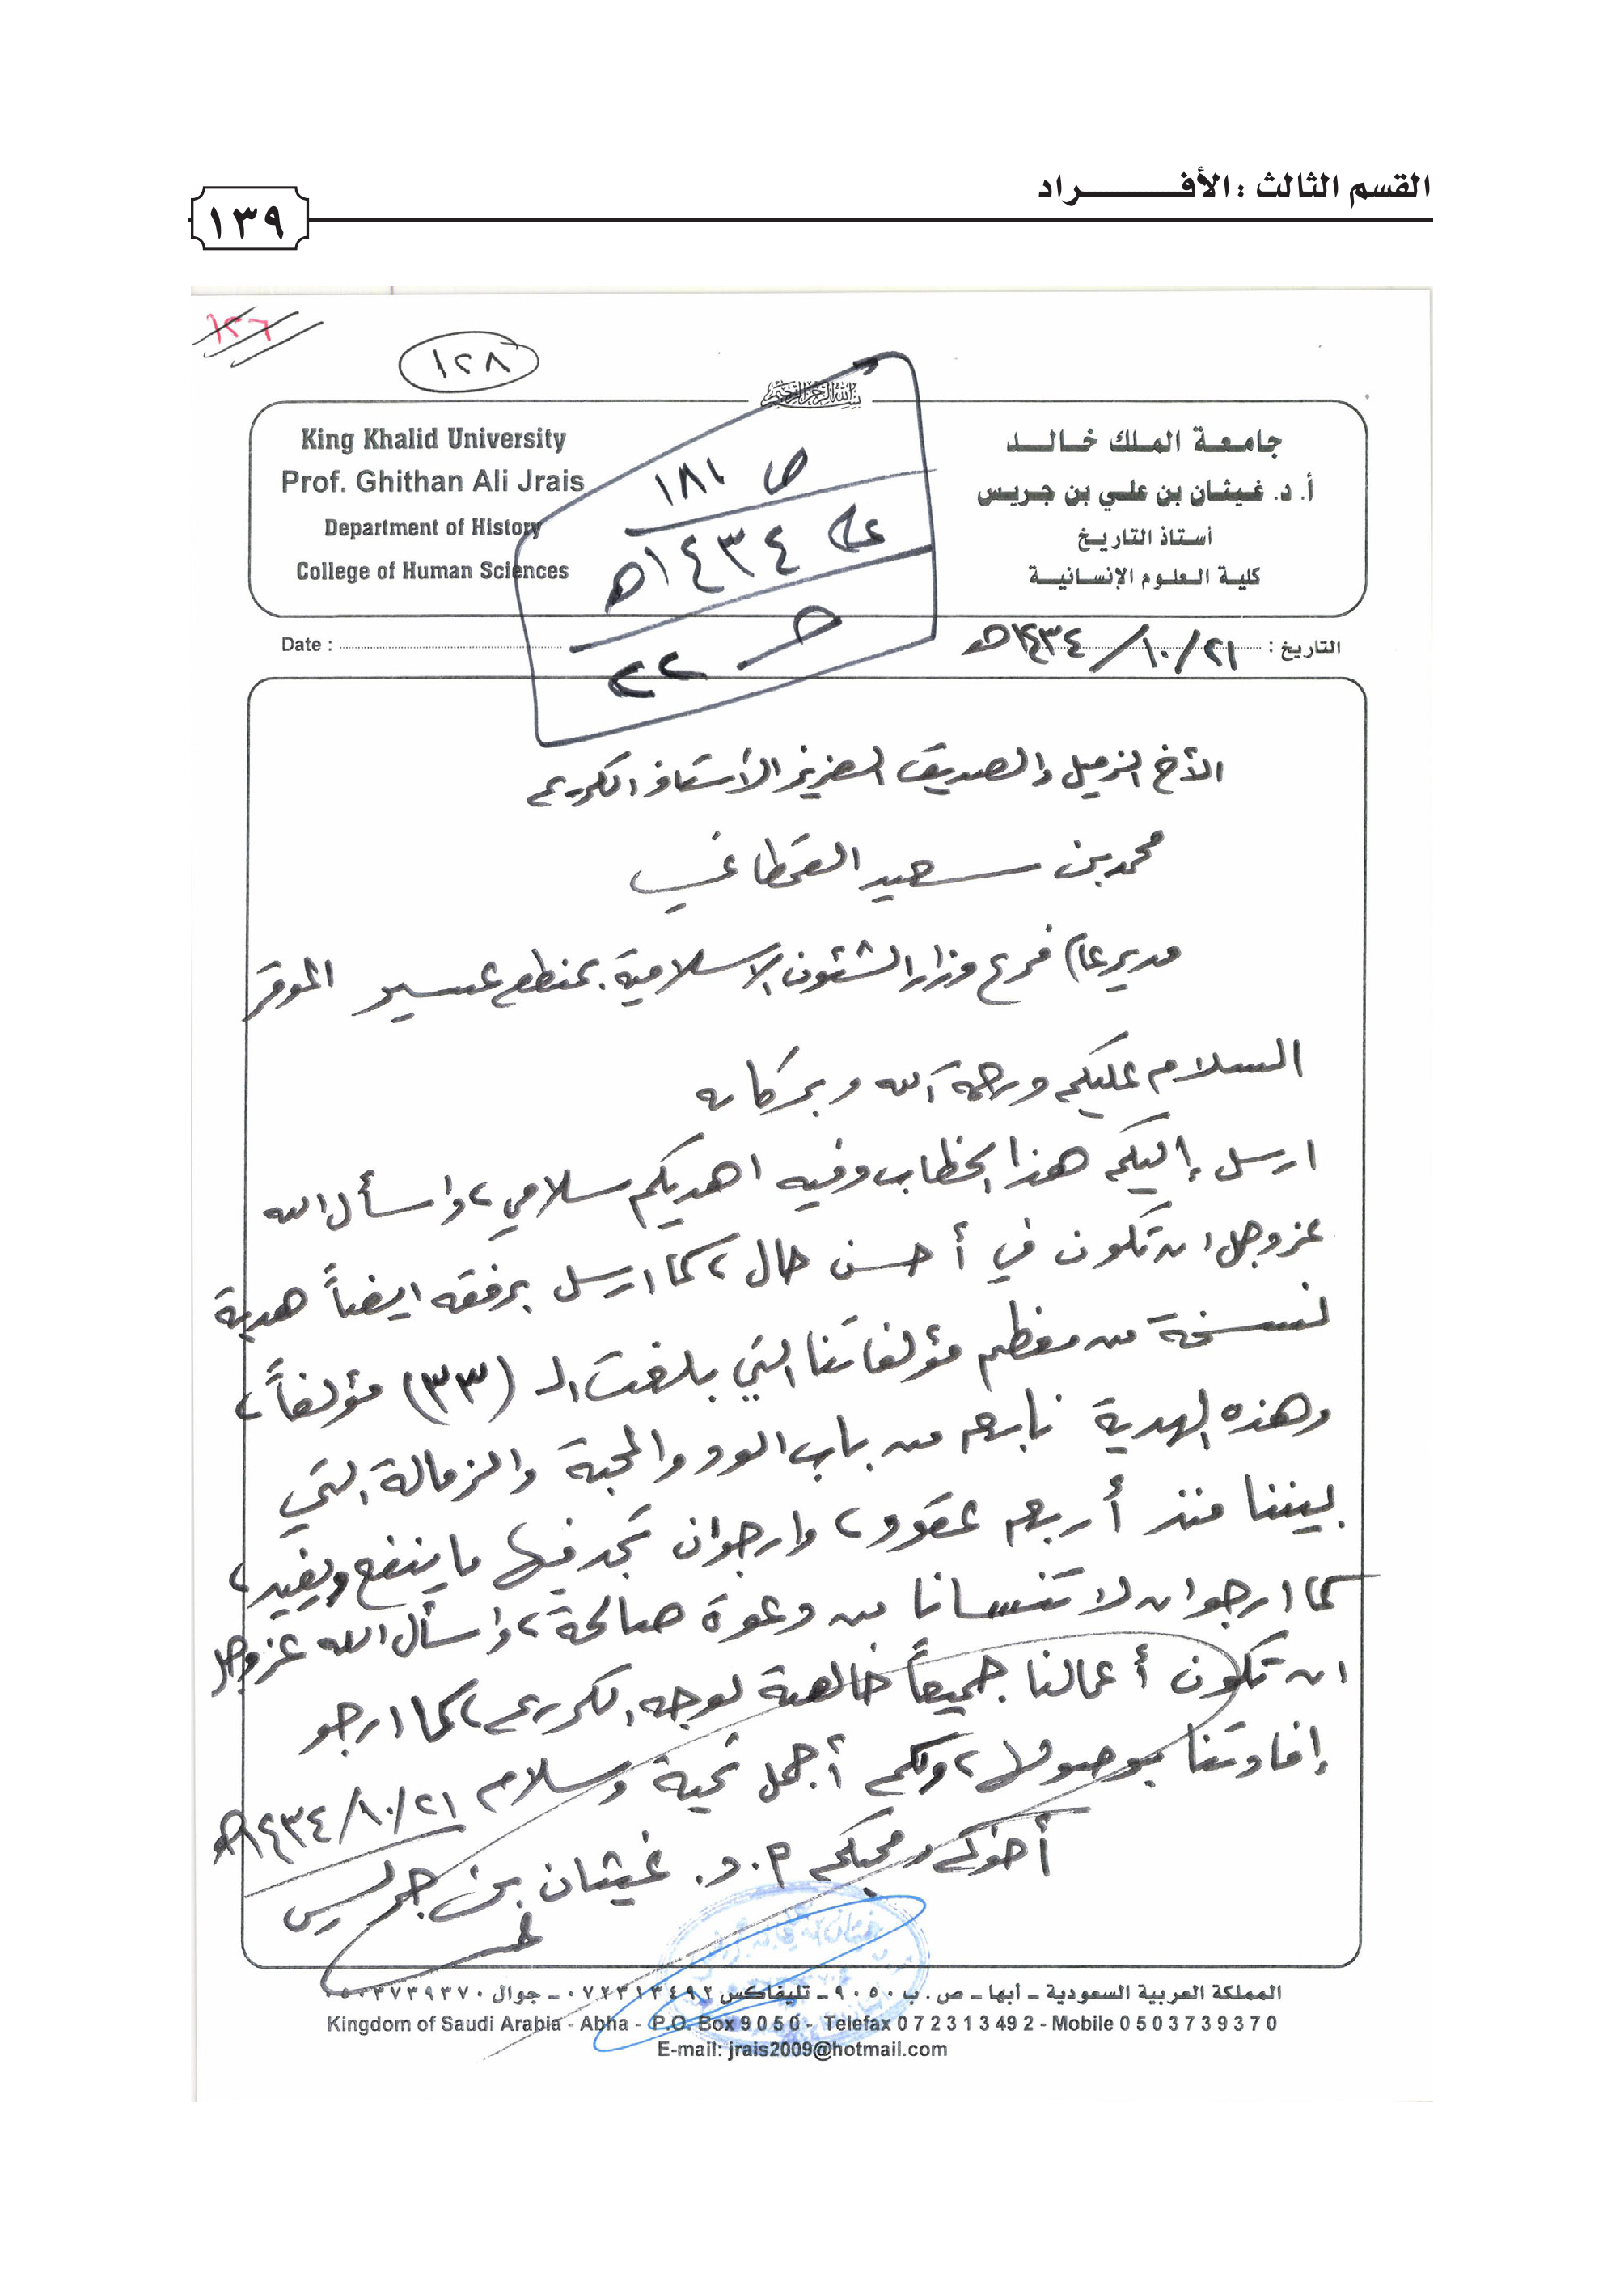 القسم الثالث : الأفـــــــراد
١٣٩
١٢٦
١٢٨
King Khalid University
Prof. Ghithan Ali Jrais
Department of History
College of Human Sciences
جامعة الملك خالد
أ. د. غيثان بن علي بن جريس
أستاذ التاريخ
كلية العلوم الإنسانية
ص ١٨١
عام ١٤٣٤هـ
حـ ٢٢
Date :
التاريخ : ٢١/ ١٠/ ١٤٣٤هـ
الأخ الزميل والصديق العزيز الأستاذ الكريم
محمد بن سعيد القحطاني
مدير عام فرع وزارة الشئون الإسلامية بمنطقة عسير الموقر
السلام عليكم ورحمة الله وبركاته
ارسل إليكم هذا الخطاب وفيه اهديكم سلامي، واسأل الله
عز وجل ان تكون في أحسن حال، كما ارسل برفقه ايضاً هدية
نسخة من معظم مؤلفاتنا التي بلغت الـ (٣٣) مؤلفاً،
وهذه الهدية نابعة من باب الود والمحبة والزمالة التي
بيننا منذ أربعة عقود، وارجوان تجد فيها ما ينفع ويفيد،
كما ارجوا ان لا تنسانا من دعوة صالحة، واسأل الله عز وجل
ان تكون أعمالنا جميعاً خالصة لوجهه الكريم، كما ارجو
إفادتنا بوصولها، ولكم أجمل تحية وسلام ٢١/ ١٠/ ١٤٣٤هـ
أخوكم ومحبكم أ. د. غيثان بن جريس
المملكة العربية السعودية ـ أبها ـ ص . ب ٩٠٥٠ ـ تليفاكس ٠٧٢٣١٣٤٩٢ ـ جوال ٠٥٠٣٧٣٩٣٧٠
Kingdom of Saudi Arabia - Abha - P.O. Box 9 0 5 0 - Telefax 0 7 2 3 1 3 49 2 - Mobile 0 5 0 3 7 3 9 3 7 0
E-mail: jrais2009@hotmail.com